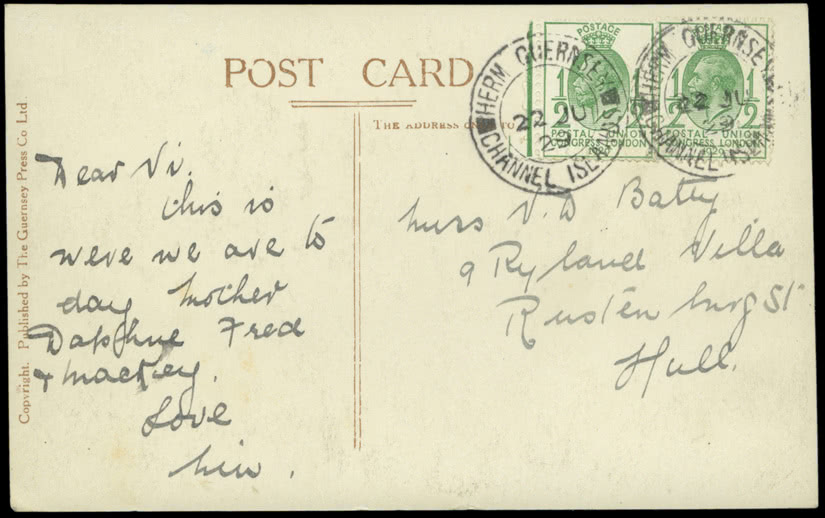 POST CARD
THE ADDRESS ON TO
Copyright. Published by The Guernsey Press Co Ltd.
Dear Vi.
this is
were we are to
day Mother
Daphne Fred
+ Mackey.
Love
Miss V.D Batty
9 Ryland Villa
Rustenburg St
Hull.
POSTAGE
1/2 1/2
POSTAL UNION
CONGRESS LONDON
POSTAGE
1/2 1/2
POSTAL UNION
CONGRESS LONDON
1929
HERM GUERNSEY
22 JU
29
CHANNEL ISLANDS
HERM GUERNSEY
22 JU
29
CHANNEL ISL